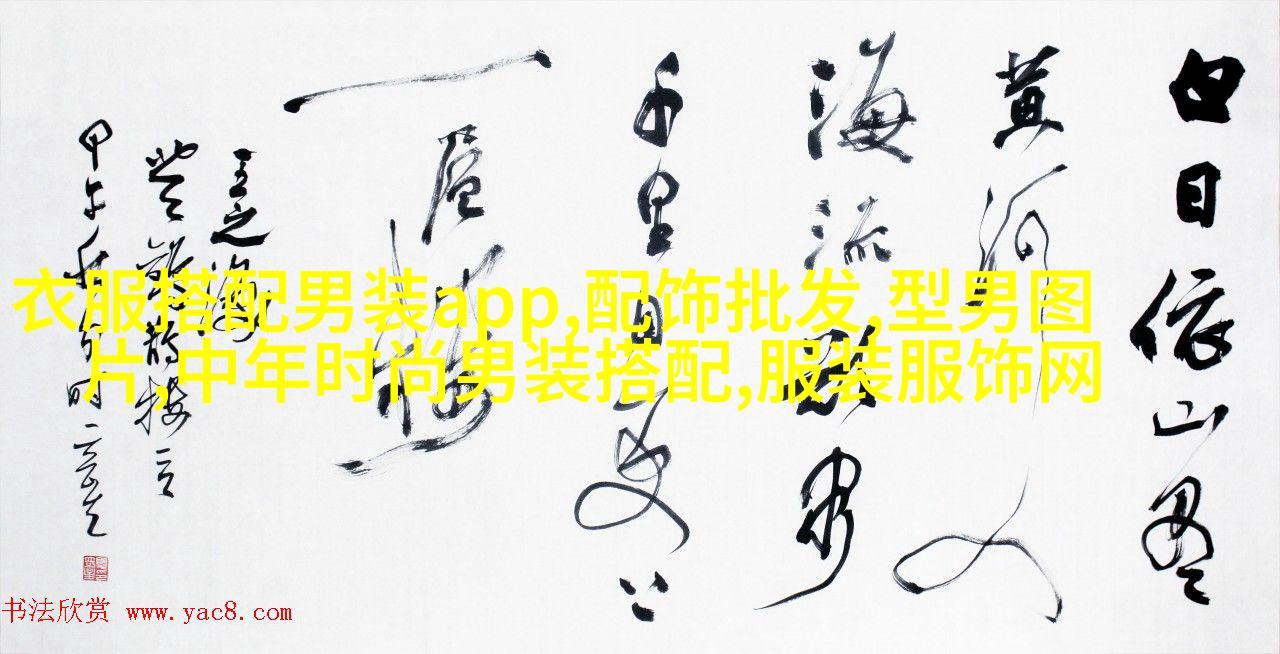 白日依山盡
黄河入
海流欲窮
千里目更上
一層樓
王之渙
登鹳鹊楼
甲午秋
衣服搭配男装app,配饰批发,型男图
片,中年时尚男装搭配,服装服饰网
书法欣赏 www.yac8.com